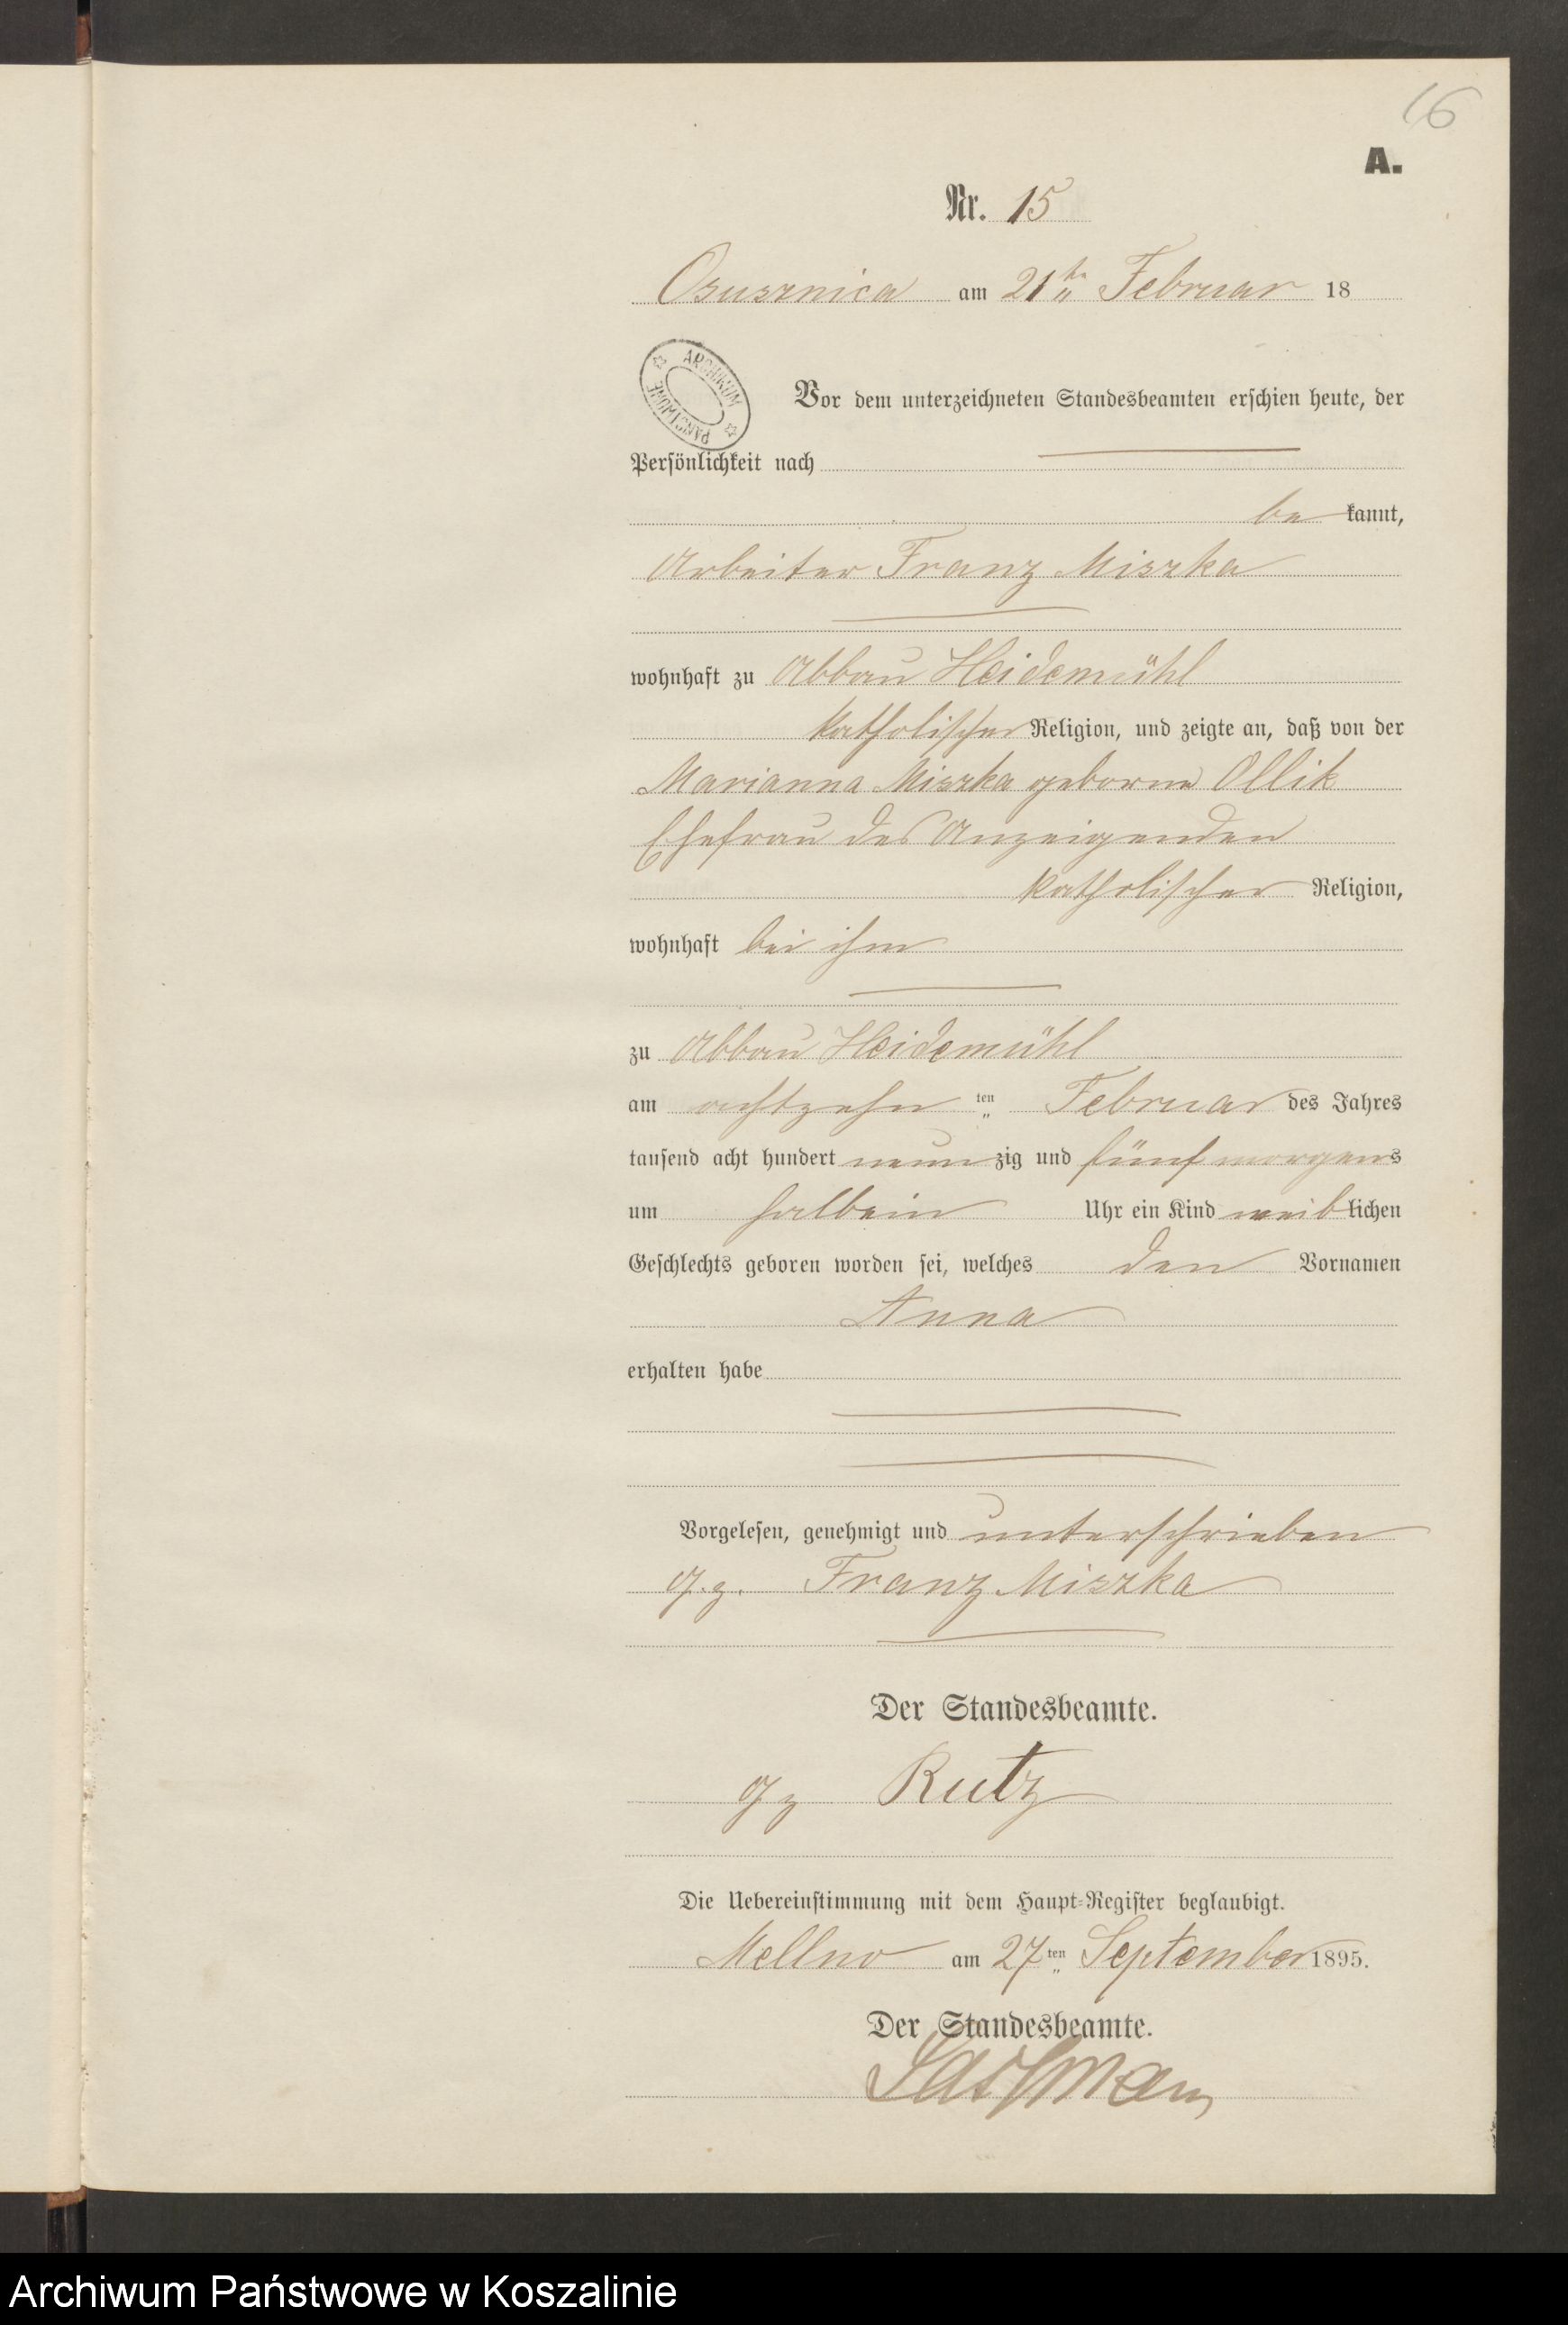 16
A.
Nr. 15
Osusznica am 21ten Februar 18
ARCHIWUM PAŃSTWOWE
Vor dem unterzeichneten Standesbeamten erschien heute, der
Persönlichkeit nach
be kannt,
Arbeiter Franz Miszka
wohnhaft zu Abbau Heidemühl
katholischer Religion, und zeigte an, daß von der
Marianna Miszka geborne Ollik
Ehefrau des Anzeigenden
katholischer Religion,
wohnhaft bei ihm
zu Abbau Heidemühl
am achtzehn ten Februar des Jahres
tausend acht hundert neun zig und fünf morgens
um halbein Uhr ein Kind weib lichen
Geschlechts geboren worden sei, welches den Vornamen
Anna
erhalten habe
Vorgelesen, genehmigt und unterschrieben
g.z. Franz Miszka
Der Standesbeamte.
gz Rutz
Die Uebereinstimmung mit dem Haupt-Register beglaubigt.
Mellno am 27ten September 1895.
Der Standesbeamte.
Archiwum Państwowe w Koszalinie